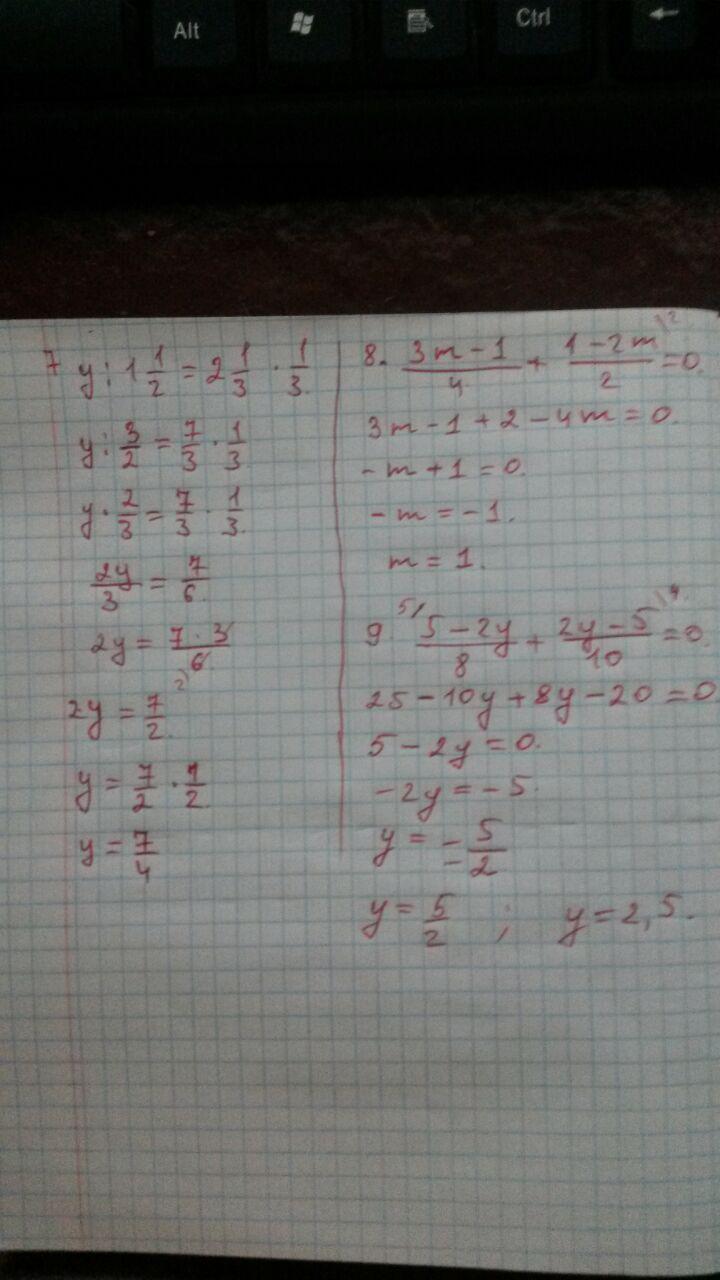 Alt Ctrl ←
7 y : 1 1/2 = 2 1/3 · 1/3.
y : 3/2 = 7/3 · 1/3
y · 2/3 = 7/3 · 1/3.
2y/3 = 7/6.
2y = 7 · 3/6
2)
2y = 7/2.
y = 7/2 · 1/2
y = 7/4
8. 3m - 1/4 + 1 - 2m/2 \2 = 0.
3m - 1 + 2 - 4m = 0.
- m + 1 = 0.
- m = - 1.
m = 1.
9. 5/ 5 - 2y/8 + 2y - 5/10 \4 = 0.
25 - 10y + 8y - 20 = 0
5 - 2y = 0.
- 2y = - 5.
y = - 5/- 2
y = 5/2 ; y = 2,5.